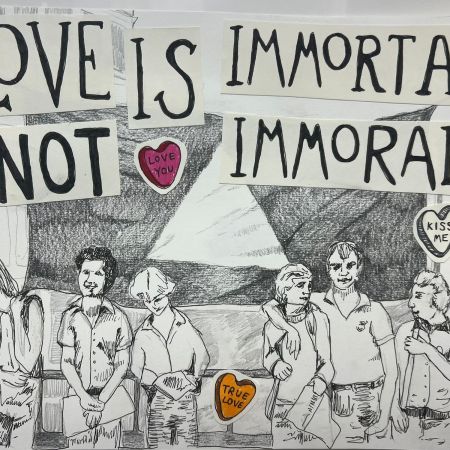 OVE IS IMMORTA
NOT IMMORAL
LOVE
YOU
KISS
ME
TRUE
LOVE